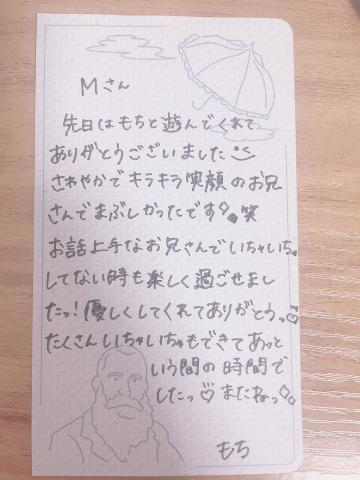 Mさん
先日はもちと遊んでくれて
ありがとうございました
さわやかでキラキラ笑顔のお兄
さんでまぶしかったです 笑
お話上手なお兄さんでいちゃいち。
してない時も楽しく過ごせまし
たっ!優しくしてくれてありがとうっ
たくさんいちゃいちゃもできてあっと
いう間の時間で
したっ♡またねっ
もち